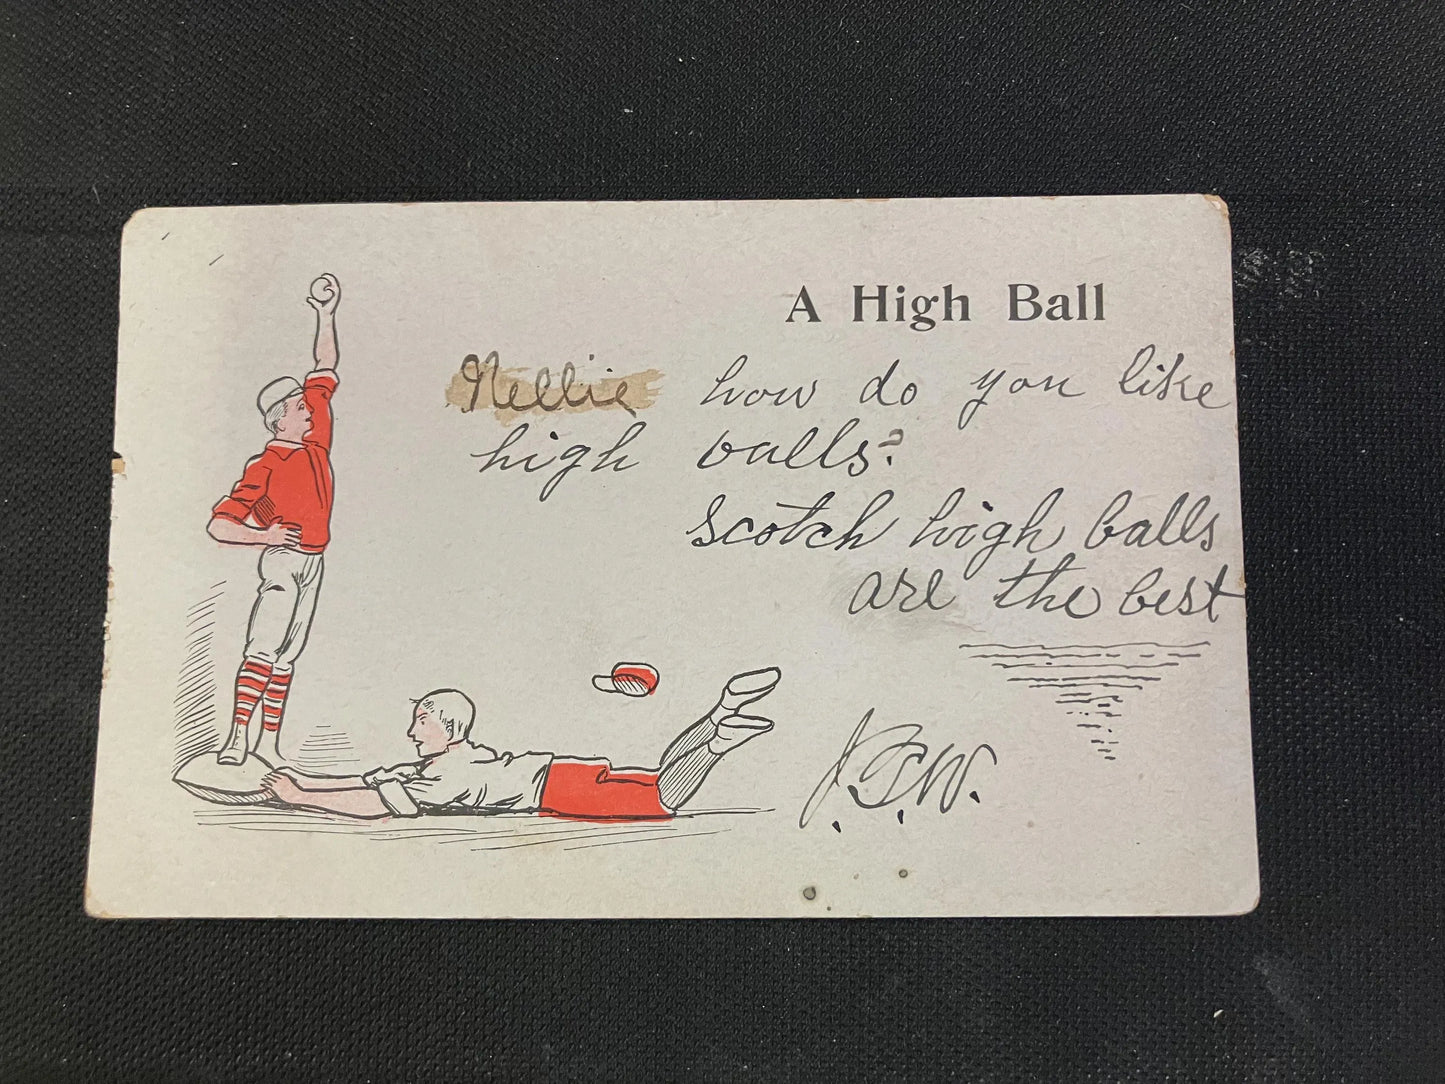 A High Ball
Nellie how do you like
high balls?
Scotch high balls
are the best
J.F.W.